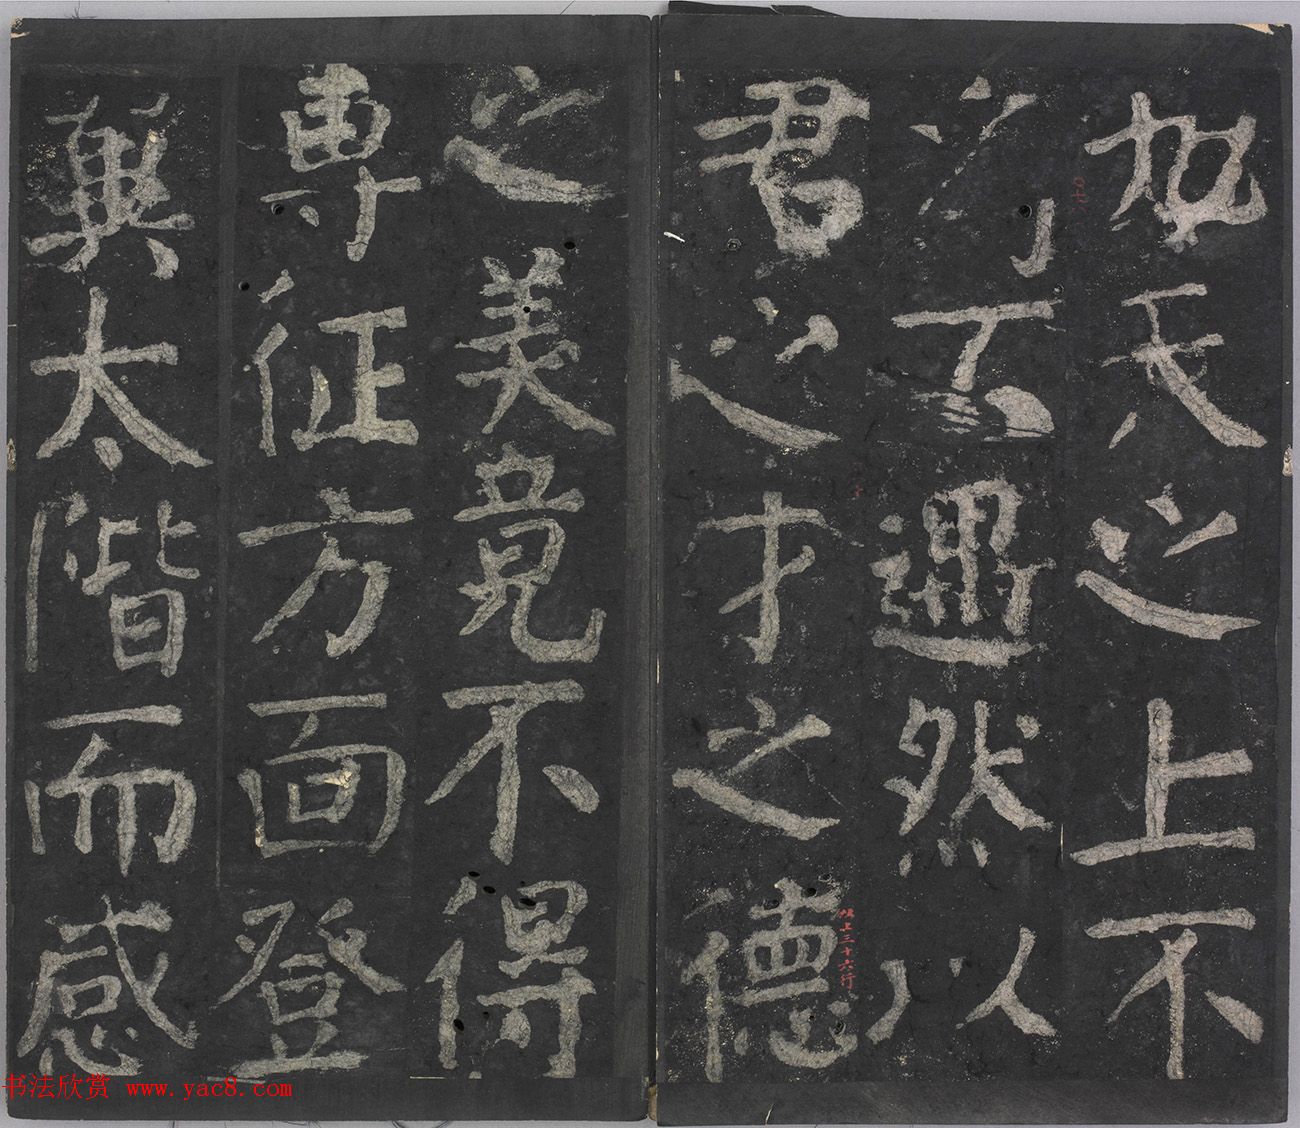 加天之上不
可不遇然以
君之才之德
之美竟不得
專征方面登
翼太階而感
帖上三十六行
书法欣赏 www.yac8.com